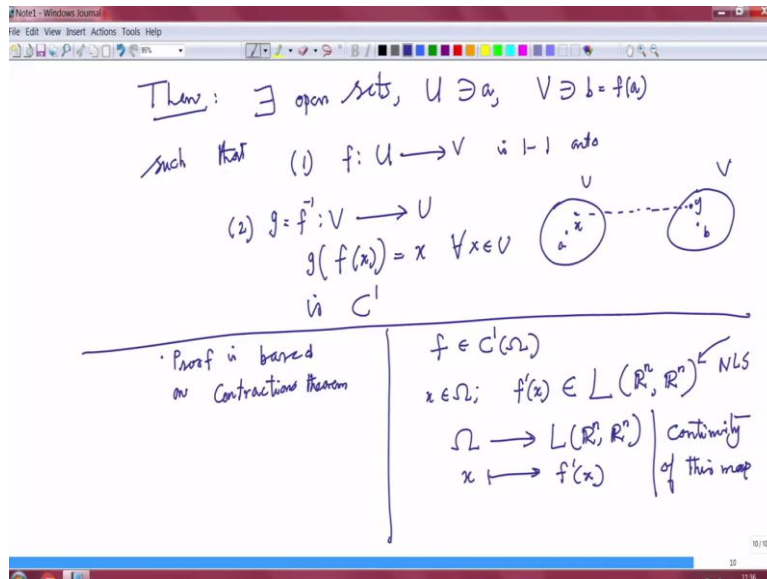 Note1 - Windows Journal
File Edit View Insert Actions Tools Help
Then: ∃ open sets, U ∋ a, V ∋ b = f(a)
such that (1) f: U ⟶ V is 1-1 onto
(2) g = f⁻¹: V ⟶ U
g(f(x)) = x ∀ x ∈ U
is C¹
U V
a x y b
· Proof is based
on Contractions theorem
f ∈ C¹(Ω)
x ∈ Ω; f'(x) ∈ L(ℝⁿ, ℝⁿ) NLS
Ω ⟶ L(ℝⁿ, ℝⁿ) | Continuity
x ⟼ f'(x) | of this map
10/10
10